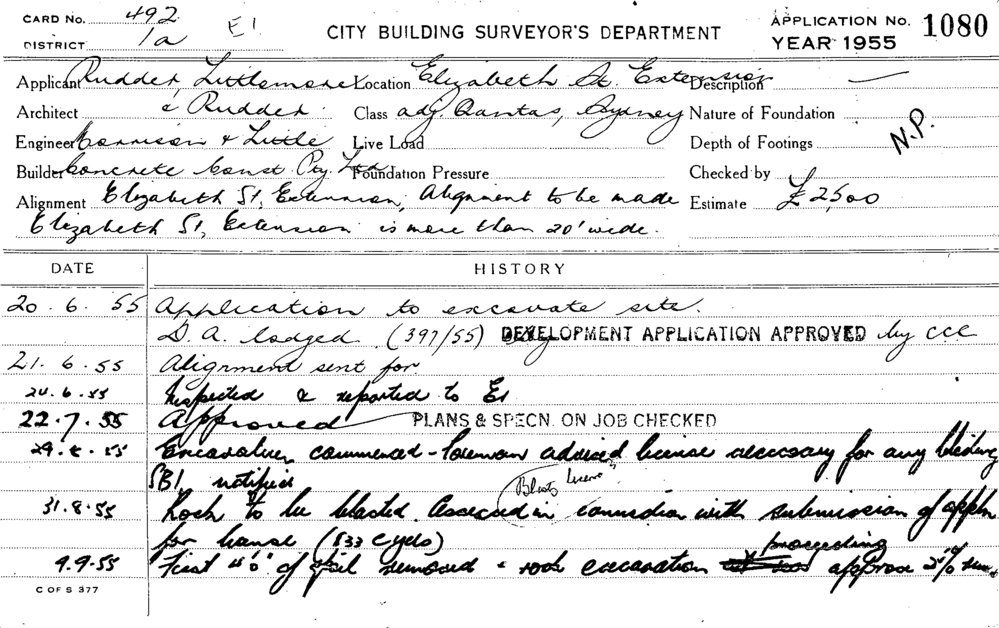 CARD No. 492
DISTRICT 1a E1
CITY BUILDING SURVEYOR'S DEPARTMENT
APPLICATION No. 1080
YEAR 1955
Applicant Rudder, Littlemore Location Elizabeth St. Extension Description —
Architect & Rudder Class adj. Qantas, Sydney Nature of Foundation
Engineer Morrison & Little Live Load Depth of Footings N.P.
Builder Concrete Const. Pty. Ltd. Foundation Pressure Checked by
Alignment Elizabeth St, Extension, Alignment to be made Estimate £2,500
Elizabeth St, Extension is more than 20' wide.
DATE HISTORY
20.6.55 Application to excavate site.
D.A. lodged (397/55) DEVELOPMENT APPLICATION APPROVED by CCC
21.6.55 Alignment sent for
24.6.55 Inspected & reported to E1
22.7.55 Approved — PLANS & SPECN. ON JOB CHECKED
29.8.55 Excavation commenced - foreman advised license necessary for any blasting
SB1 notified
31.8.55 Rock to be blasted. Assessed in connection with submission of appln
for license (533 c yds)
proceeding
9.9.55 First of soil removed & rock excavation approx
C OF S 377